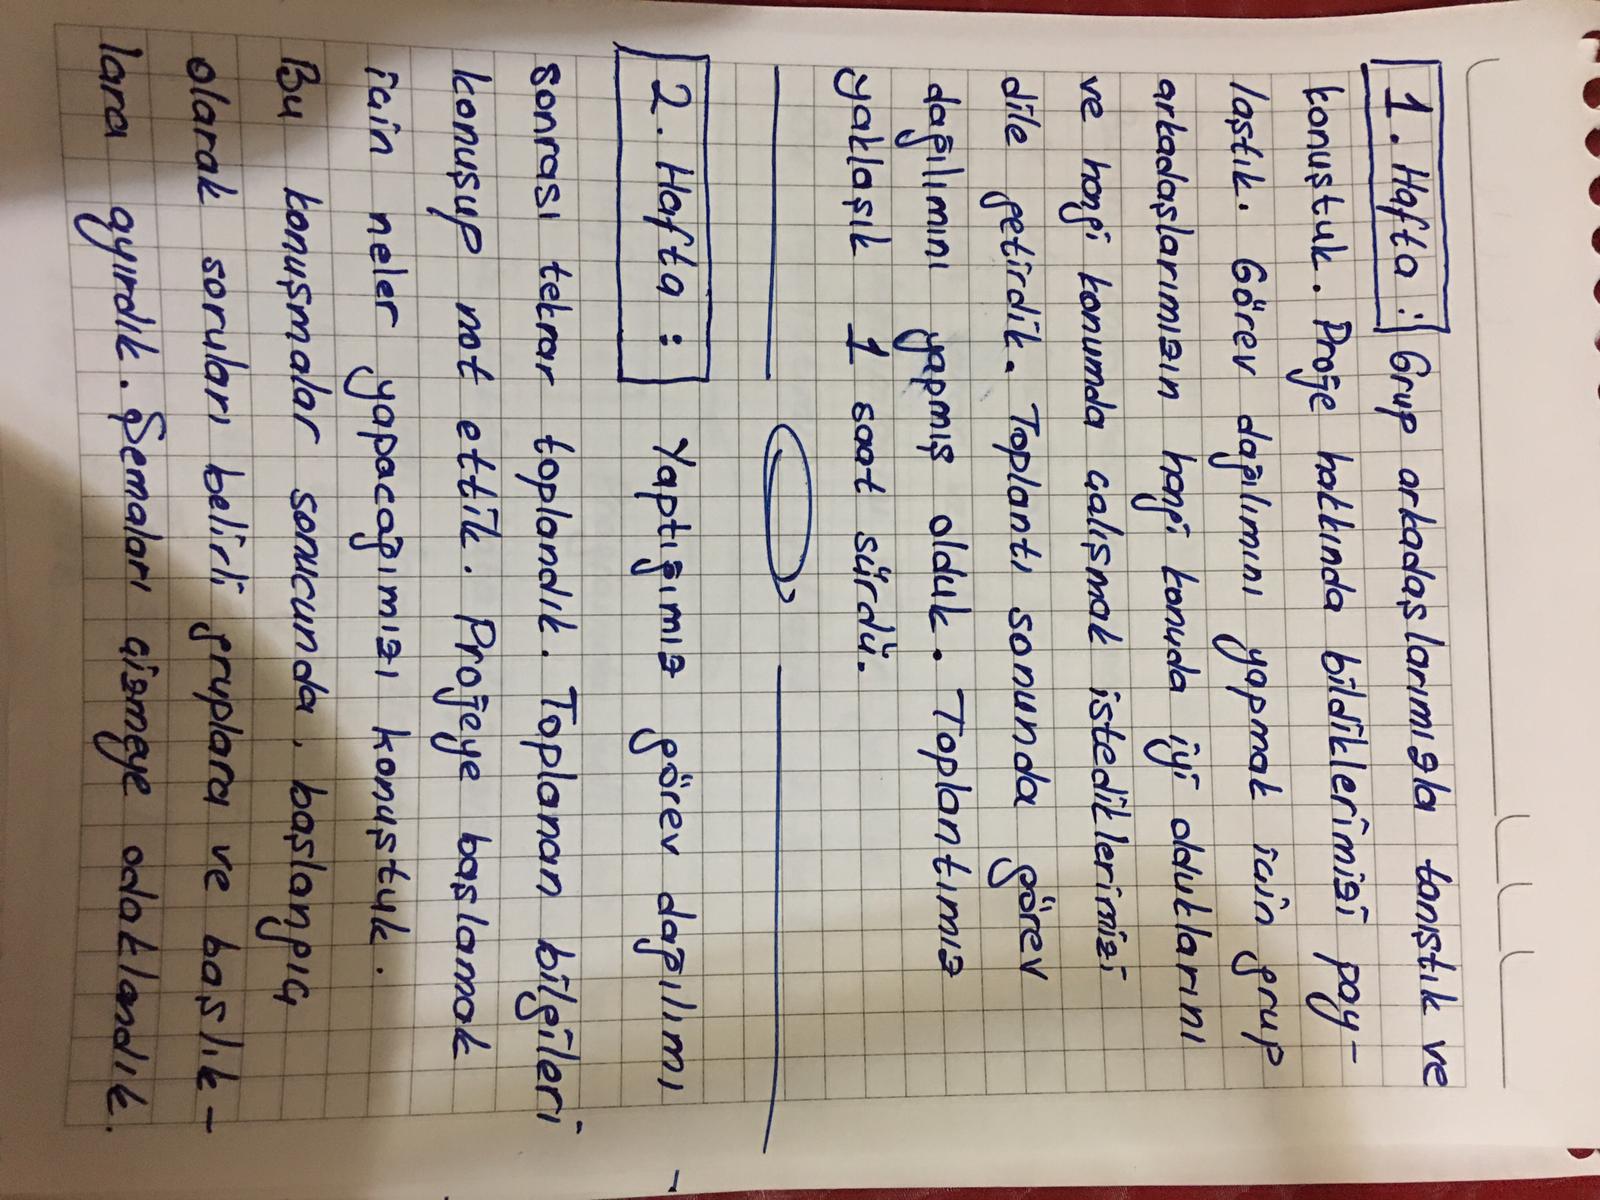 1. Hafta : Grup arkadaşlarımızla tanıştık ve
konuştuk. Proje hakkında bildiklerimizi pay-
laştık. Görev dağılımını yapmak için grup
arkadaşlarımızın hangi konuda iyi olduklarını
ve hangi konumda çalışmak istediklerimizi
dile getirdik. Toplantı sonunda görev
dağılımını yapmış olduk. Toplantımız
yaklaşık 1 saat sürdü.
2. Hafta : Yaptığımız görev dağılımı
sonrası tekrar toplandık. Toplanan bilgileri
konuşup not ettik. Projeye başlamak
için neler yapacağımızı konuştuk.
Bu konuşmalar sonucunda, başlangıç
olarak soruları belirli gruplara ve başlık-
lara ayırdık. Şemaları çizmeye odaklandık.